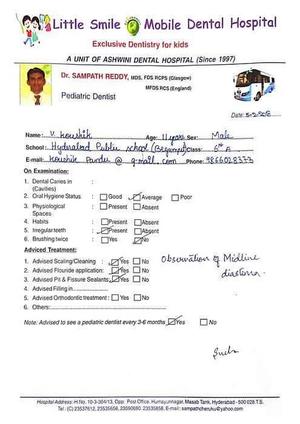 Little Smile Mobile Dental Hospital
Exclusive Dentistry for kids
A UNIT OF ASHWINI DENTAL HOSPITAL (Since 1997)
Dr. SAMPATH REDDY, MDS, FDS RCPS (Glasgow)
MFDS RCS (England)
Pediatric Dentist
Date:
Name: V. Koushik Age: 11 years Sex: Male
School: Hyderabad Public School Class: 6th A
E-mail: @ g-mail.com Phone: 9866028333
On Examination:
1. Dental Caries in :
(Cavities)
2. Oral Hygiene Status : Good Average Poor
3. Physiological : Present Absent
Spaces
4. Habits : Present Absent
5. Irregular teeth : Present Absent
6. Brushing twice : Yes No
Observation of Midline
diastema.
Adviced Treatment:
1. Advised Scaling/Cleaning : Yes No
2. Advised Flouride application: Yes No
3. Advised Pit & Fissure Sealants: Yes No
4. Advised Filling in
5. Advised Orthodontic treatment : Yes No
6. Others:
Note: Advised to see a pediatric dentist every 3-6 months Yes No
Hospital Address: H.No. 10-3-304/13, Opp. Post Office, Humayunnagar, Masab Tank, Hyderabad - 500 028.T.S.
Tel: (C) 23537612, 23535658, 23390690 23535858, E-mail: sampathcheruku@yahoo.com